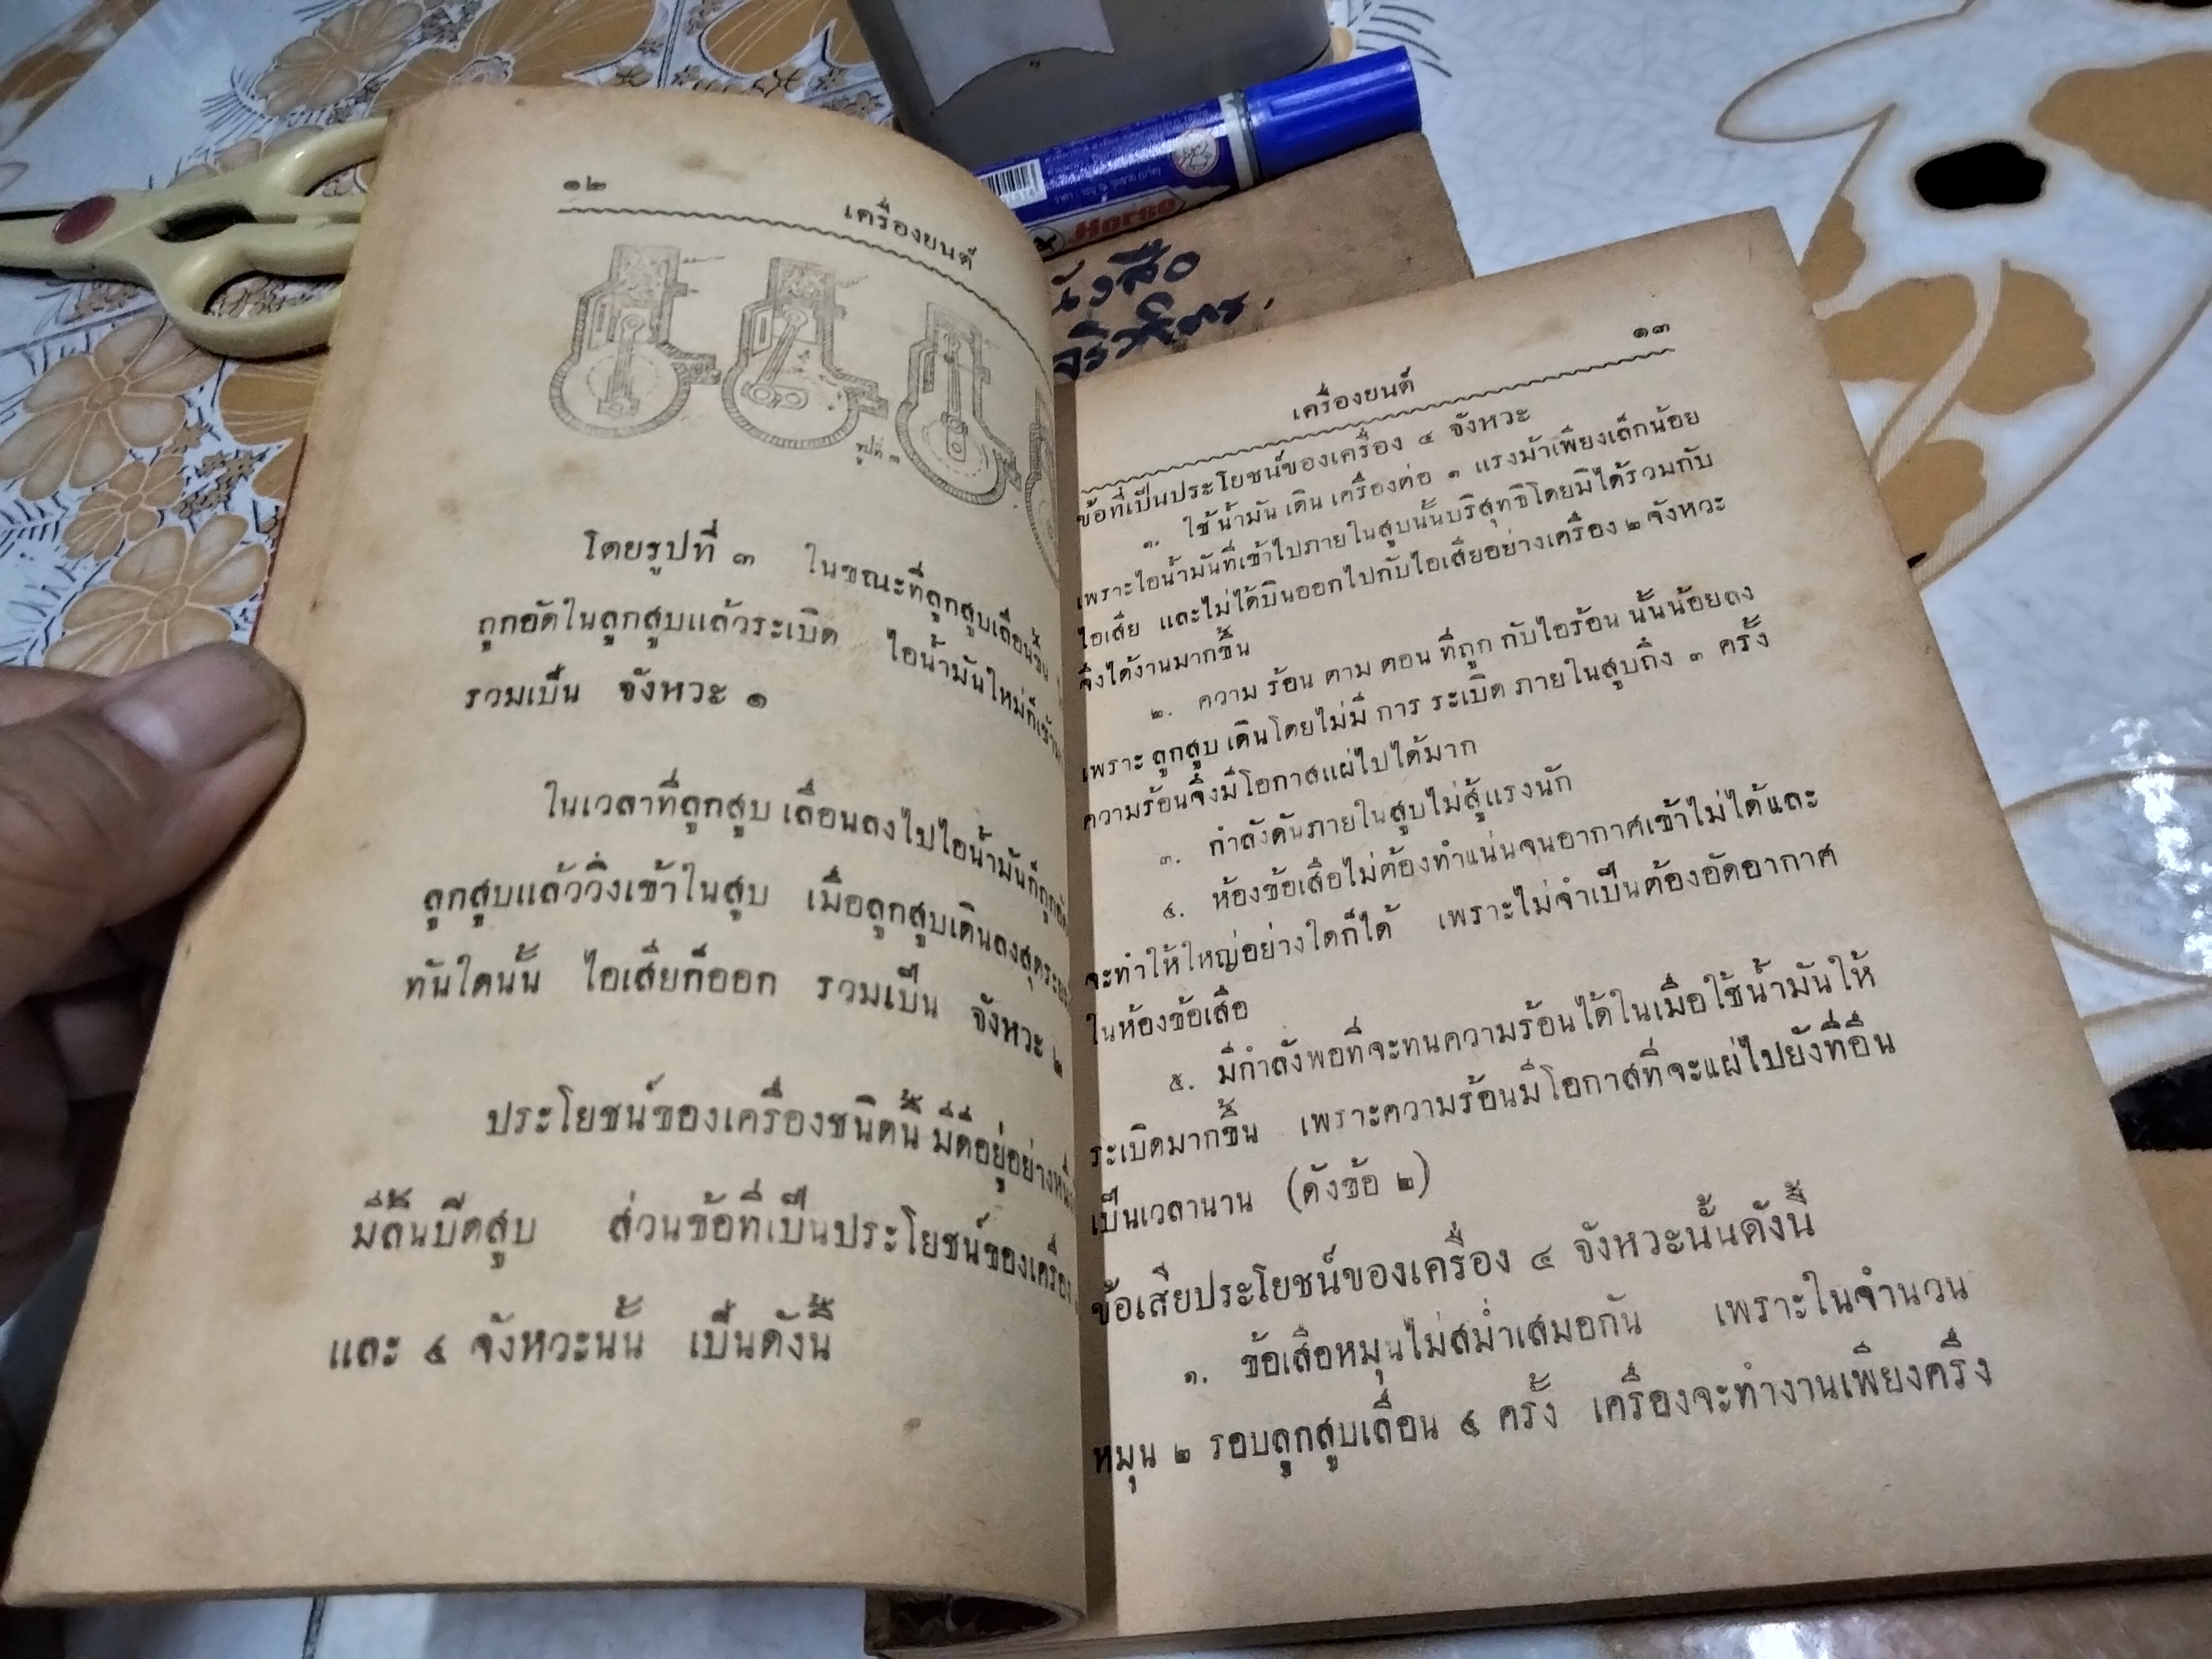 ๑๒
เครื่องยนต์
รูปที่ ๓
โดยรูปที่ ๓ ในขณะที่ลูกสูบเลื่อนขึ้น
ถูกอัดในลูกสูบแล้วระเบิด ไอน้ำมันใหม่ก็เข้า
รวมเป็น จังหวะ ๑
ในเวลาที่ลูกสูบ เลื่อนลงไปไอน้ำมันก็ถูกอัด
ลูกสูบแล้ววิ่งเข้าในสูบ เมื่อลูกสูบเดินลงสุดระยะ
ทันใดนั้น ไอเสียก็ออก รวมเป็น จังหวะ ๒
ประโยชน์ของเครื่องชนิดนี้ มีดีอยู่อย่างหนึ่ง
มีลิ้นบีดสูบ ส่วนข้อที่เป็นประโยชน์ของเครื่อง
และ ๔ จังหวะนั้น เป็นดังนี้
Horse
นังสือ
๑๓
เครื่องยนต์
ข้อที่เป็นประโยชน์ของเครื่อง ๔ จังหวะ
๑. ใช้น้ำมัน เดิน เครื่องต่อ ๑ แรงม้าเพียงเล็กน้อย
เพราะไอน้ำมันที่เข้าไปภายในสูบนั้นบริสุทธิโดยมิได้รวมกับ
ไอเสีย และไม่ได้บินออกไปกับไอเสียอย่างเครื่อง ๒ จังหวะ
จึงได้งานมากขึ้น
๒. ความ ร้อน ตาม ตอน ที่ถูก กับไอร้อน นั้นน้อยลง
เพราะ ลูกสูบ เดินโดยไม่มี การ ระเบิด ภายในสูบถึง ๓ ครั้ง
ความร้อนจึงมีโอกาสแผ่ไปได้มาก
๓. กำลังดันภายในสูบไม่สู้แรงนัก
๔. ห้องข้อเสือไม่ต้องทำแน่นจนอากาศเข้าไม่ได้และ
จะทำให้ใหญ่อย่างใดก็ได้ เพราะไม่จำเป็นต้องอัดอากาศ
ในห้องข้อเสือ
๕. มีกำลังพอที่จะทนความร้อนได้ในเมื่อใช้น้ำมันให้
ระเบิดมากขึ้น เพราะความร้อนมีโอกาสที่จะแผ่ไปยังที่อื่น
เป็นเวลานาน (ดังข้อ ๒)
ข้อเสียประโยชน์ของเครื่อง ๔ จังหวะนั้นดังนี้
๑. ข้อเสือหมุนไม่สม่ำเสมอกัน เพราะในจำนวน
หมุน ๒ รอบลูกสูบเลื่อน ๔ ครั้ง เครื่องจะทำงานเพียงครึ่ง